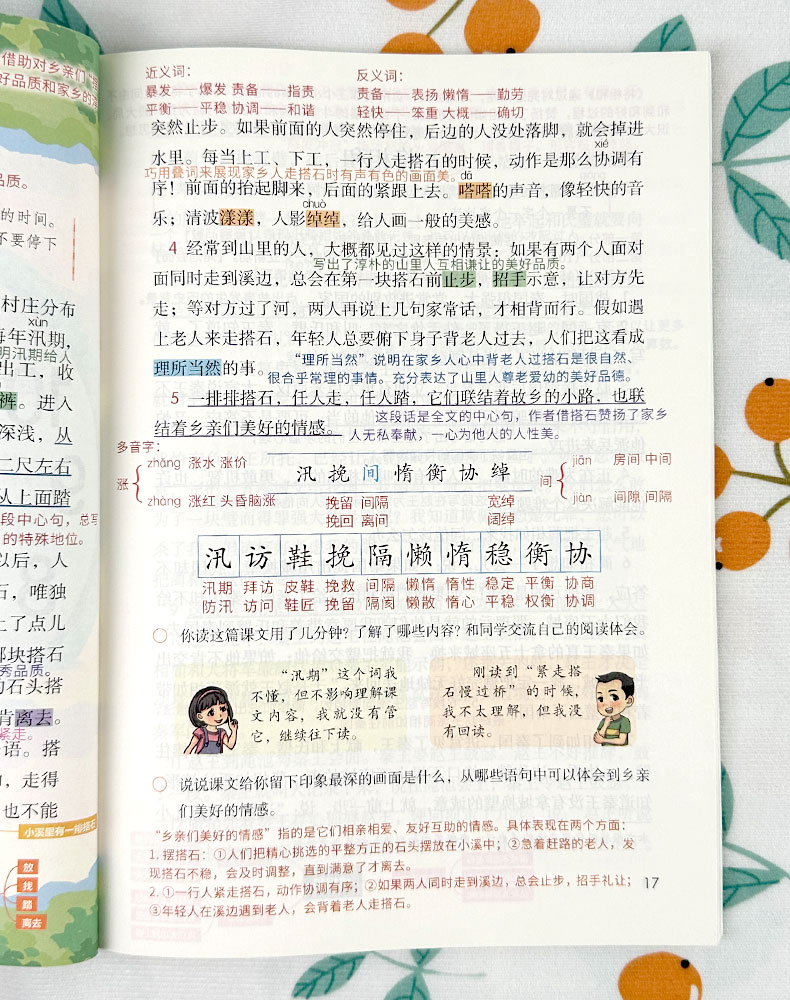 借助对乡亲们
好品质和家乡的
品质。
的时间。
不要停下
村里分布
xùn
每年汛期，
明汛期给人
出工，收
裤。进入
深浅，从
二尺左右
从上面踏
段中心句，总写
的特殊地位。
以后，人
石，唯独
上了点儿
那块搭石
秀品质。
的石头搭
肯离去。
紧走。
语。搭
，走得
也不能
小溪里有一排搭石
放
找
踏
离去
近义词：
暴发——爆发 责备——指责
平衡——平稳 协调——和谐
反义词：
责备——表扬 懒惰——勤劳
轻快——笨重 大概——确切
突然止步。如果前面的人突然停住，后边的人没处落脚，就会掉进
水里。每当上工、下工，一行人走搭石的时候，动作是那么协调有
xié
巧用叠词来展现家乡人走搭石时有声有色的画面美。
dā
序！前面的抬起脚来，后面的紧跟上去。嗒嗒的声音，像轻快的音
chuò
乐；清波漾漾，人影绰绰，给人画一般的美感。
4 经常到山里的人，大概都见过这样的情景：如果有两个人面对
写出了淳朴的山里人互相谦让的美好品质。
面同时走到溪边，总会在第一块搭石前止步，招手示意，让对方先
走；等对方过了河，两人再说上几句家常话，才相背而行。假如遇
上老人来走搭石，年轻人总要俯下身子背老人过去，人们把这看成
理所当然的事。
“理所当然”说明在家乡人心中背老人过搭石是很自然、
很合乎常理的事情。充分表达了山里人尊老爱幼的美好品德。
5 一排排搭石，任人走，任人踏，它们联结着故乡的小路，也联
结着乡亲们美好的情感。
这段话是全文的中心句，作者借搭石赞扬了家乡
人无私奉献，一心为他人的人性美。
多音字：
涨
zhǎng 涨水 涨价
zhàng 涨红 头昏脑涨
汛 挽 间 惰 衡 协 绰
间
jiān 房间 中间
jiàn 间隙 间隔
挽留 间隔 宽绰
挽回 离间 阔绰
汛 访 鞋 挽 隔 懒 惰 稳 衡 协
汛期 拜访 皮鞋 挽救 间隔 懒惰 惰性 稳定 平衡 协商
防汛 访问 鞋匠 挽留 隔阂 懒散 惰心 平稳 权衡 协调
你读这篇课文用了几分钟？了解了哪些内容？和同学交流自己的阅读体会。
“汛期”这个词我
不懂，但不影响理解课
文内容，我就没有管
它，继续往下读。
刚读到“紧走搭
石慢过桥”的时候，
我不太理解，但我没
有回读。
说说课文给你留下印象最深的画面是什么，从哪些语句中可以体会到乡亲
们美好的情感。
“乡亲们美好的情感”指的是它们相亲相爱、友好互助的情感。具体表现在两个方面：
1. 摆搭石：①人们把精心挑选的平整方正的石头摆放在小溪中；②急着赶路的老人，发
现搭石不稳，会及时调整，直到满意了才离去。
2. ①一行人紧走搭石，动作协调有序；②如果两人同时走到溪边，总会止步，招手礼让；
③年轻人在溪边遇到老人，会背着老人走搭石。
17